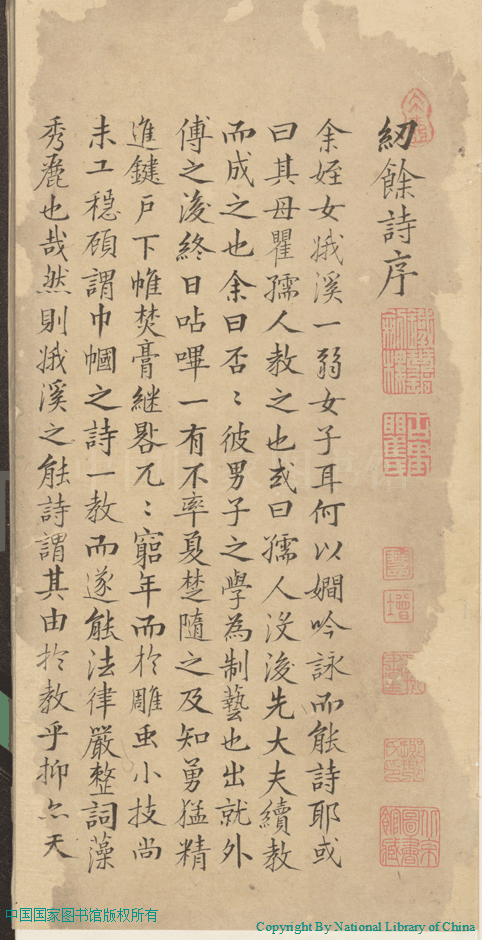 紉餘詩序
余姪女娥溪一弱女子耳何以嫺吟詠而能詩耶或
曰其母瞿孺人教之也或曰孺人沒後先大夫續教
而成之也余曰否〻彼男子之學為制藝也出就外
傅之後終日呫嗶一有不率夏楚隨之及知勇猛精
進鍵戶下帷焚膏継晷兀〻窮年而於雕虫小技尚
未工穩頋謂巾幗之詩一教而遂能法律嚴整詞藻
秀麗也哉然則娥溪之能詩謂其由於教乎抑亦天
中国国家图书馆版权所有
Copyright By National Library of China